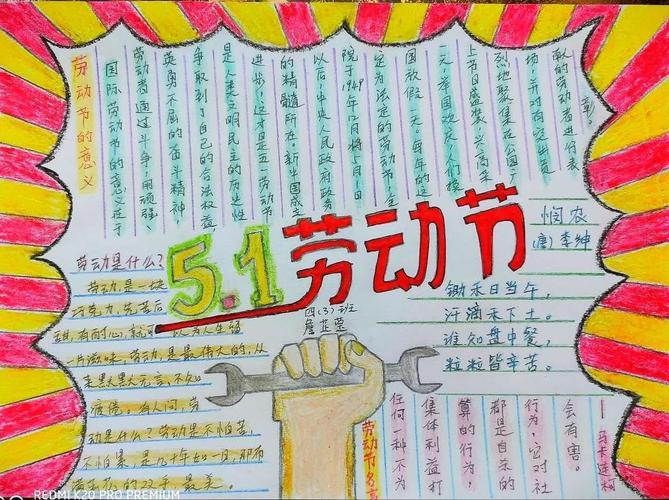 劳动节的意义
国际劳动节的意义在于
劳动者通过斗争，用顽强、
英勇不屈的奋斗精神，
争取到了自己的合法权益，
是人类文明民主的历史性
进步，这才是五一劳动节
的精髓所在。新中国成立
以后，中央人民政府政务
院于1949年12月将5月1日
定为法定的劳动节，全
国放假一天。每年的这
一天，举国欢庆，人们换
上节日盛装，兴高采
烈地聚集在公园、广
场，并对有突出贡
献的劳动者进行表
彰。
5.1劳动节
四(3)班
劳动是什么?
劳动是一块
巧克力，先苦后
甜，有耐心，就可以为人生
一片滋味。劳动，是最伟大的，从
来默默无言，不
疲倦。有人问，劳
动是什么？劳动是不怕苦，
不怕累，是几十年如一日，那布
的双手最美。
悯农
(唐)李绅
锄禾日当午，
汗滴禾下土。
谁知盘中餐，
粒粒皆辛苦。
劳动节名言
任何一种不为
集体利益打
算的行为，
都是自杀的
行为，它对社
会有害。
——马卡连柯
REDMI K20 PRO PREMIUM